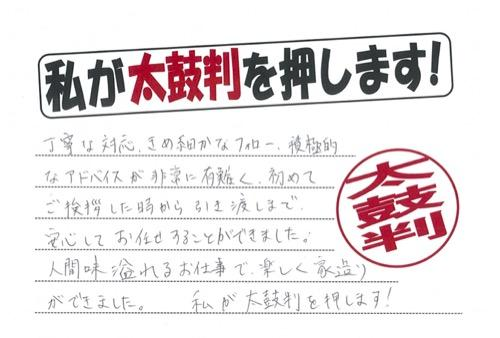 私が太鼓判を押します!
丁寧な対応、きめ細かなフォロー、積極的
なアドバイスが非常に有難く、初めて
ご挨拶した時から引き渡しまで、
安心してお任せすることができました。
人間味溢れるお仕事で、楽しく家造り
ができました。 私が太鼓判を押します!
太鼓判